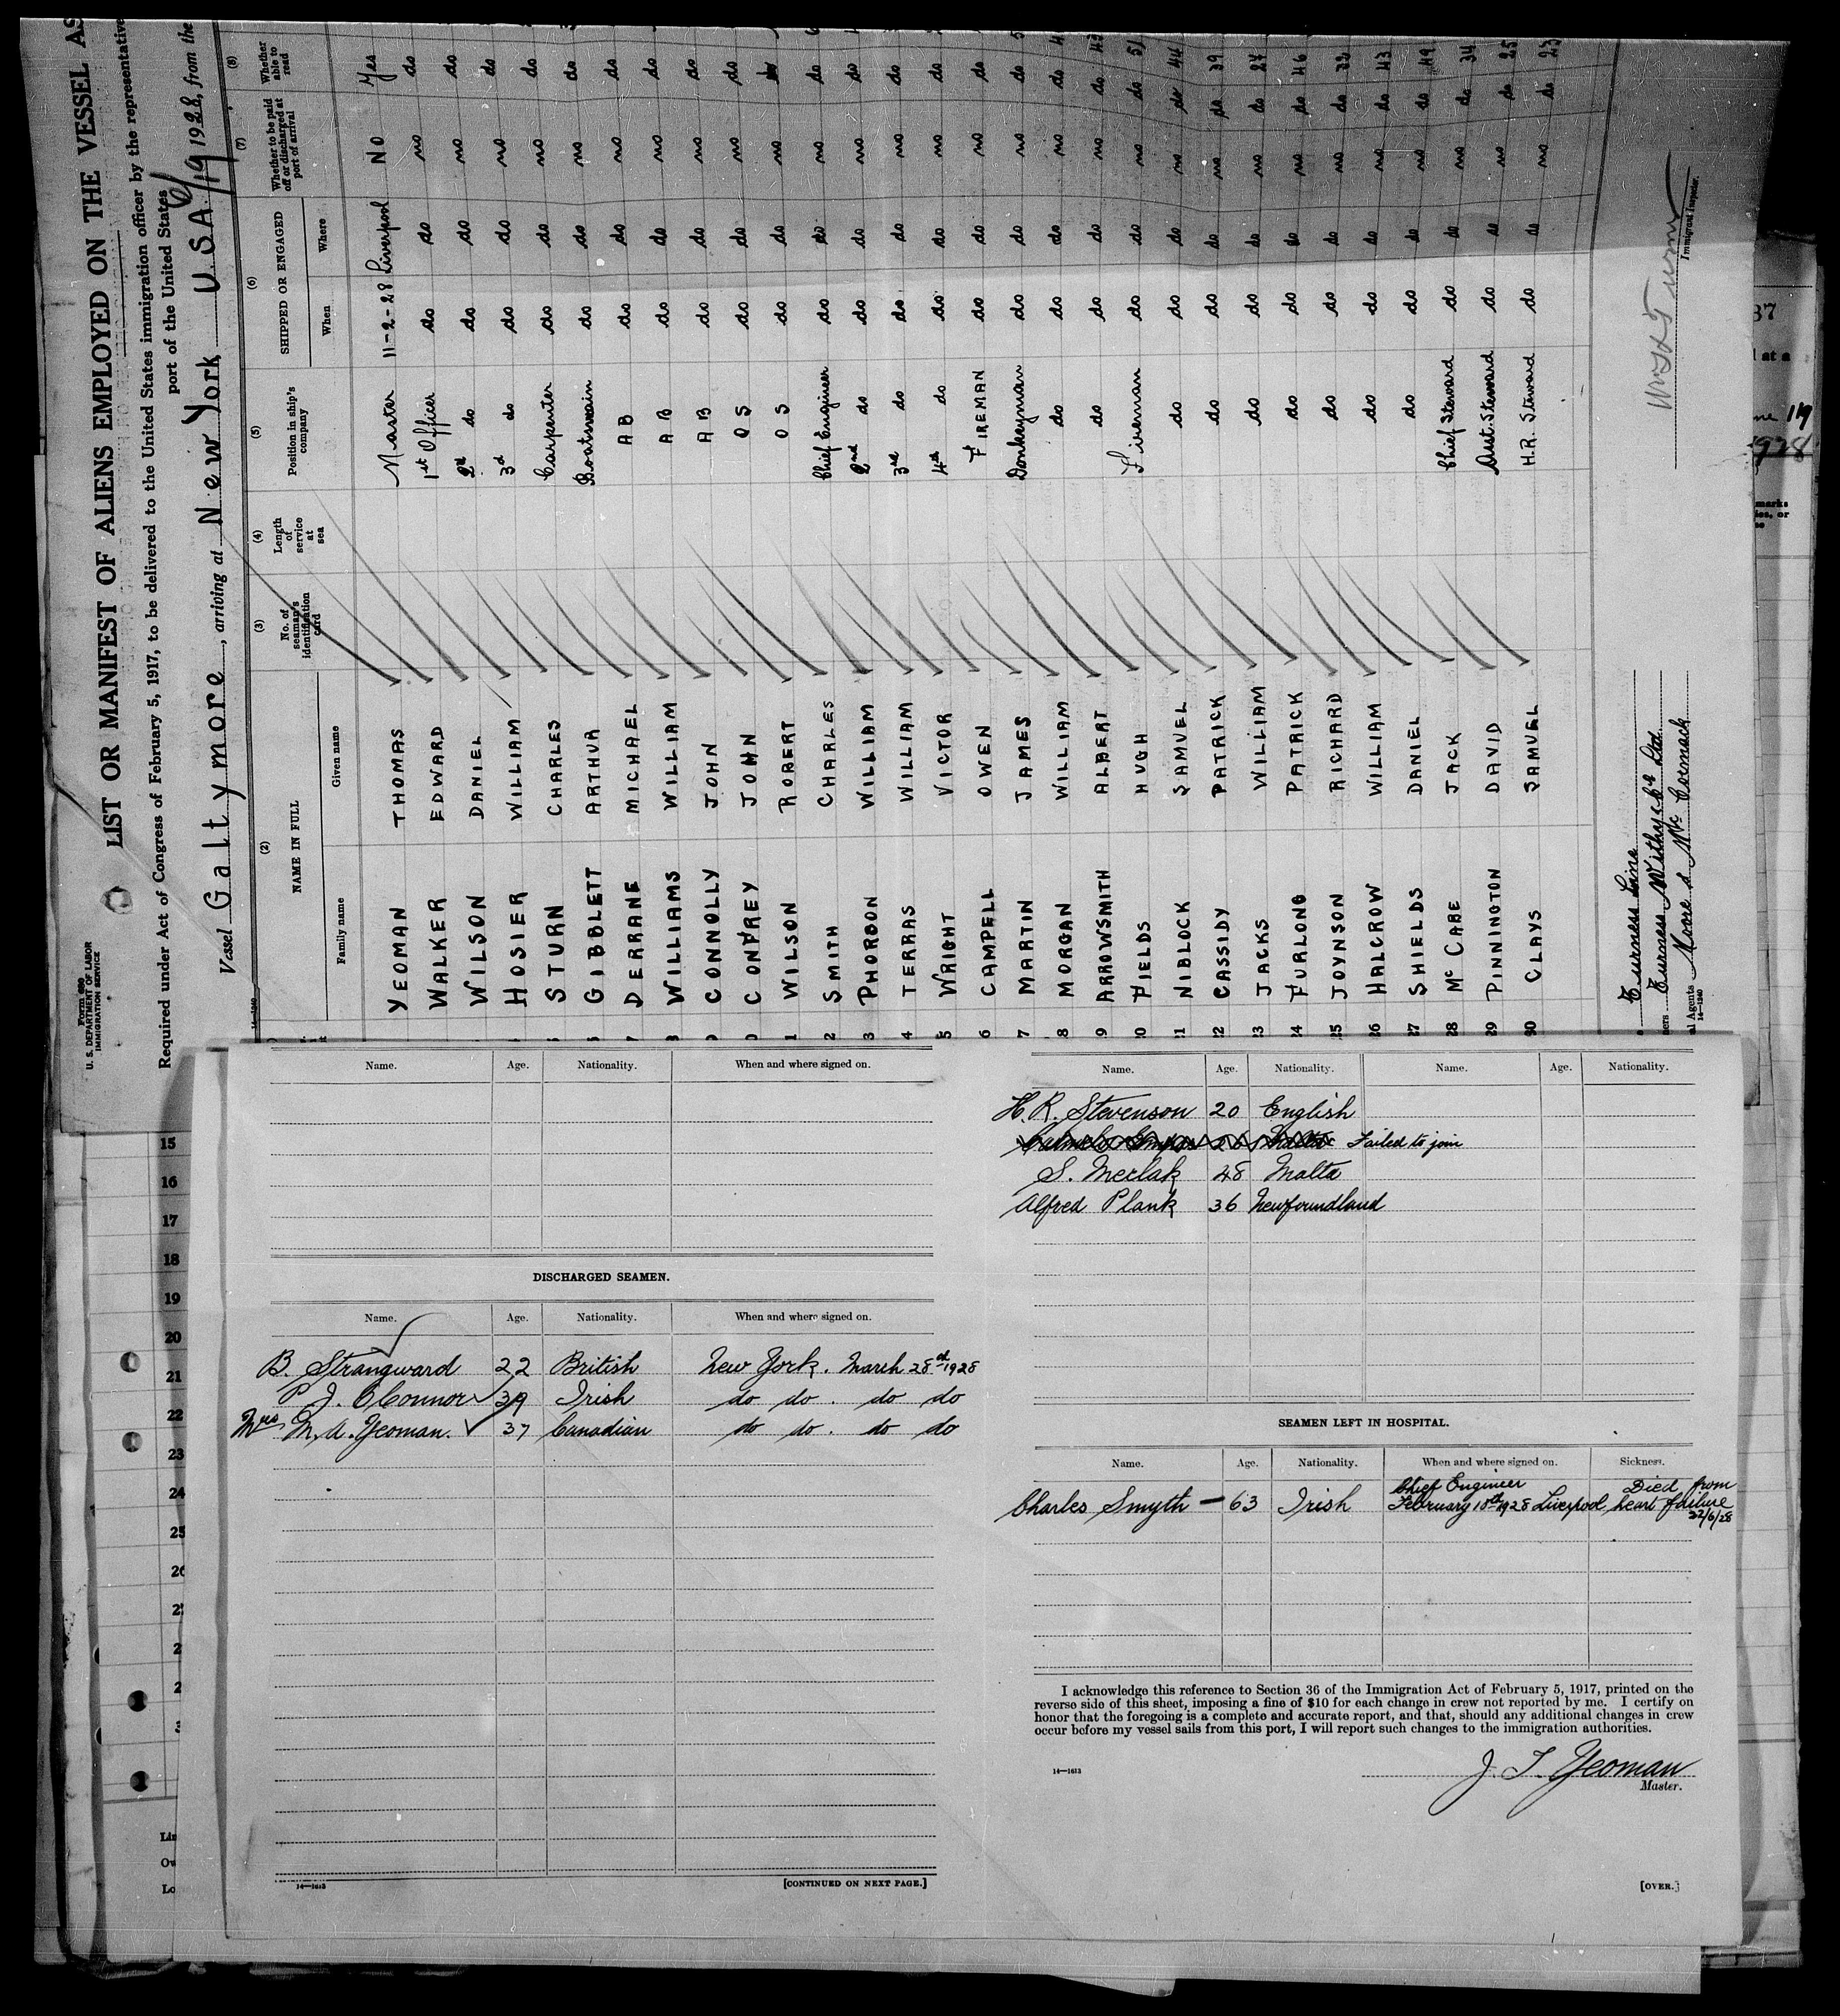 Form 680
U. S. DEPARTMENT OF LABOR
IMMIGRATION SERVICE
LIST OR MANIFEST OF ALIENS EMPLOYED ON THE VESSEL AS
Required under Act of Congress of February 5, 1917, to be delivered to the United States immigration officer by the representative
port of the United States
Vessel Galtymore, arriving at New York U.S.A. 6/19 1928, from the
(2) (3) (4) (5) (6) (7) (8)
NAME IN FULL No. of seaman's identification card Length of service at sea Position in ship's company SHIPPED OR ENGAGED Whether to be paid off or discharged at port of arrival Whether able to read
Family name Given name When Where
YEOMAN THOMAS Master 11-2-28 Liverpool NO Yes
WALKER EDWARD 1st Officer do do no do
WILSON DANIEL 2d do do do no do
HOSIER WILLIAM 3d do do do no do
STURN CHARLES Carpenter do do no do
GIBBLETT ARTHUR Boatswain do do no do
DERRANE MICHAEL AB do do no do
WILLIAMS WILLIAM AB do do no do
CONNOLLY JOHN AB do do no do
CONFREY JOHN OS do do no do
1 WILSON ROBERT OS do do no
2 SMITH CHARLES Chief Engineer do do no do
3 PHORSON WILLIAM 2nd do do do no do
4 TERRAS WILLIAM 3rd do do do no do
5 WRIGHT VICTOR 4th do do do no do
6 CAMPELL OWEN FIREMAN do do no do
7 MARTIN JAMES Donkeyman do do no do
18 MORGAN WILLIAM do do do no do
19 ARROWSMITH ALBERT do do do no do 43
20 FIELDS HUGH Fireman do do no do 51
21 NIBLOCK SAMUEL do do do no do 44
22 CASSIDY PATRICK do do do no do 39
23 JACKS WILLIAM do do do no do 27
24 FURLONG PATRICK do do do no do 46
25 JOYNSON RICHARD do do do no do 32
26 HALCROW WILLIAM do do do no do 43
27 SHIELDS DANIEL do do do no do 49
28 McCABE JACK Chief Steward do do no do 34
29 PINNINGTON DAVID Asst. Steward do do no do 25
30 CLAYS SAMUEL H.R. Steward do do no do 23
Furness Line
ners Furness Withy & Co Ltd
al Agents Moore & McCormack
14—1240
Immigrant Inspector.
37
d at a
ne 19
1928
15
16
17
18
19
20
21
22
23
24
25
Lin
Ow
Lo
Name. Age. Nationality. When and where signed on.
DISCHARGED SEAMEN.
Name. Age. Nationality. When and where signed on.
B. Strangward 22 British New York. March 28th 1928
P. J. O'Connor 39 Irish do do . do do
Mrs M. A. Yeoman. 37 Canadian do do . do do
14—1613
[CONTINUED ON NEXT PAGE.]
Name. Age. Nationality. Name. Age. Nationality.
H. R. Stevenson 20 English
Failed to join
S. Merlak 48 Malta
Alfred Plank 36 Newfoundland
SEAMEN LEFT IN HOSPITAL.
Name. Age. Nationality. When and where signed on. Sickness.
Charles Smyth — 63 Irish Chief Engineer February 10th 1928 Liverpool Died from heart failure 22/6/28
I acknowledge this reference to Section 36 of the Immigration Act of February 5, 1917, printed on the
reverse side of this sheet, imposing a fine of $10 for each change in crew not reported by me. I certify on
honor that the foregoing is a complete and accurate report, and that, should any additional changes in crew
occur before my vessel sails from this port, I will report such changes to the immigration authorities.
14—1613
J. T. Yeoman
Master.
[OVER.]